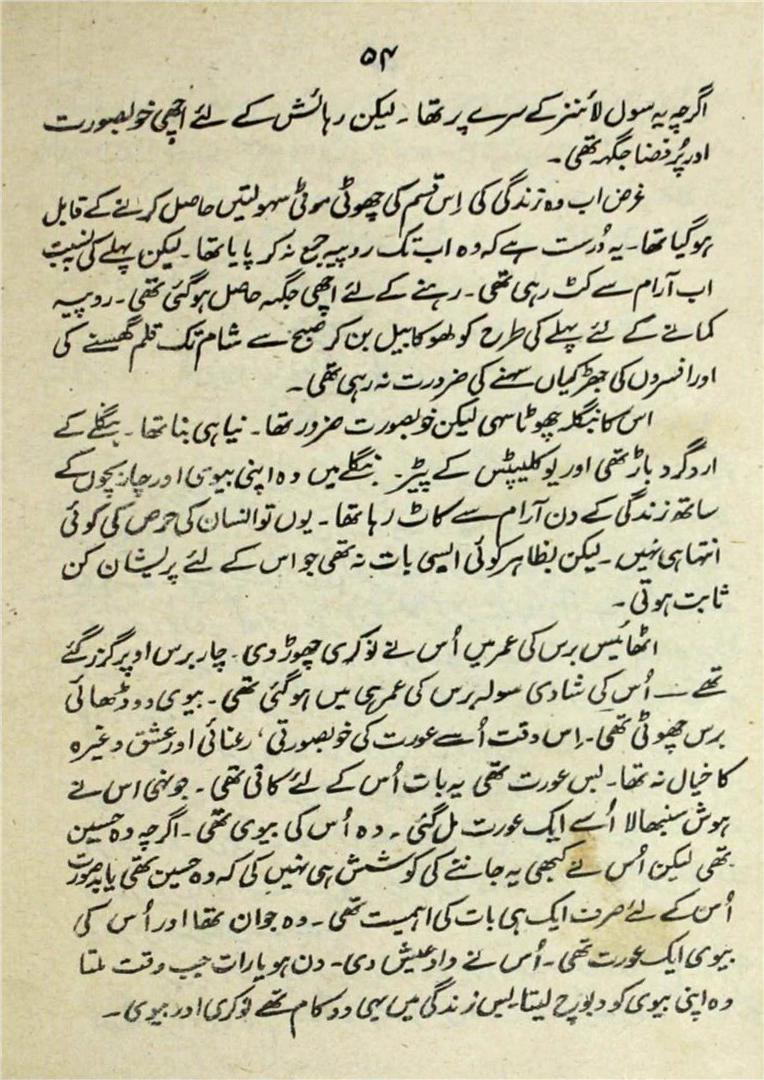 ۵۴
اگرچہ یہ سول لائنز کے سرے پر تھا ۔ لیکن رہائش کے لئے اچھی خوبصورت
اور پُر فضا جگہ تھی ۔
غرض اب وہ زندگی کی اِس قسم کی چھوٹی موٹی سہولتیں حاصل کرنے کے قابل
ہو گیا تھا ۔ یہ دُرست ہے کہ وہ اب تک روپیہ جمع نہ کر پایا تھا ۔ لیکن پہلے کی نسبت
اب آرام سے کٹ رہی تھی ۔ رہنے کے لئے اچھی جگہ حاصل ہو گئی تھی ۔ روپیہ
کمانے کے لئے پہلے کی طرح کولھو کا بیل بن کر صبح سے شام تک قلم گھسنے کی
اور افسروں کی جھڑکیاں سہنے کی ضرورت نہ رہی تھی ۔
اس کا بنگلہ چھوٹا سہی لیکن خوبصورت ضرور تھا ۔ نیا ہی بنا تھا ۔ بنگلے کے
ارد گرد باڑ تھی اور یوکلیپٹس کے پیڑ ۔ بنگلے میں وہ اپنی بیوی اور چار بچوں کے
ساتھ زندگی کے دن آرام سے کاٹ رہا تھا ۔ یوں تو انسان کی حرص کی کوئی
انتہا ہی نہیں ۔ لیکن بظاہر کوئی ایسی بات نہ تھی جو اس کے لئے پریشان کن
ثابت ہوتی ۔
اٹھائیس برس کی عمر میں اُس نے نوکری چھوڑ دی ۔ چار برس اوپر گزر گئے
تھے ـــ اُس کی شادی سولہ برس کی عمر ہی میں ہو گئی تھی ۔ بیوی دو ڈھائی
برس چھوٹی تھی ۔ اِس وقت اُسے عورت کی خوبصورتی ، رعنائی اور عشق وغیرہ
کا خیال نہ تھا ۔ بس عورت تھی یہ بات اُس کے لئے کافی تھی ۔ جونہی اس نے
ہوش سنبھالا اُسے ایک عورت مل گئی ۔ وہ اُس کی بیوی تھی ۔ اگرچہ وہ حسین
تھی لیکن اُس نے کبھی یہ جاننے کی کوشش ہی نہیں کی کہ وہ حسین تھی یا بدصورت
اُس کے لئے صرف ایک ہی بات کی اہمیت تھی ۔ وہ جوان تھا اور اُس کی
بیوی ایک عورت تھی ۔ اُس نے دادِ عیش دی ۔ دن ہو یا رات جب وقت ملتا
وہ اپنی بیوی کو دبوچ لیتا ۔ بس زندگی میں یہی دو کام تھے نوکری اور بیوی ۔